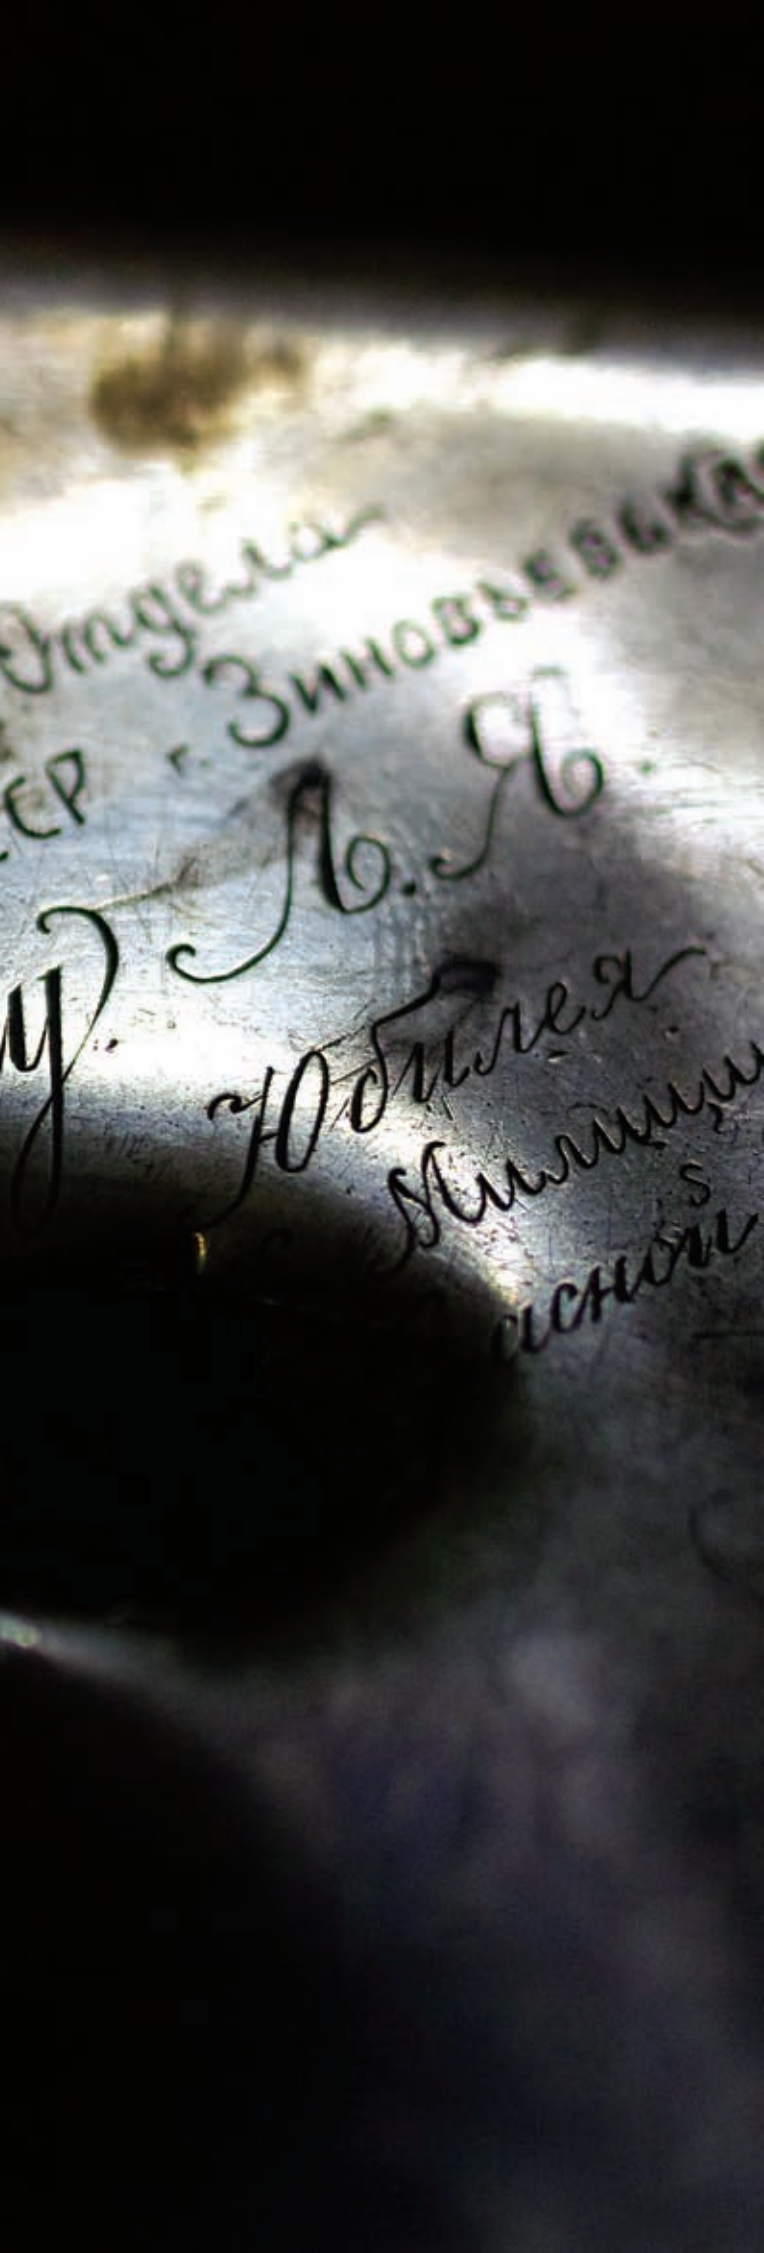 Отдела
ССР г. Зиновьевска
у Л. Я.
Юбилея
Милиции
асной